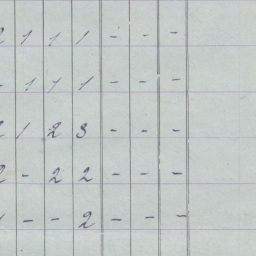 2 1 1 1 - - -
- 1 1 1 - - -
2 1 2 3 - - -
2 - 2 2 - - -
1 - - 2 - - -